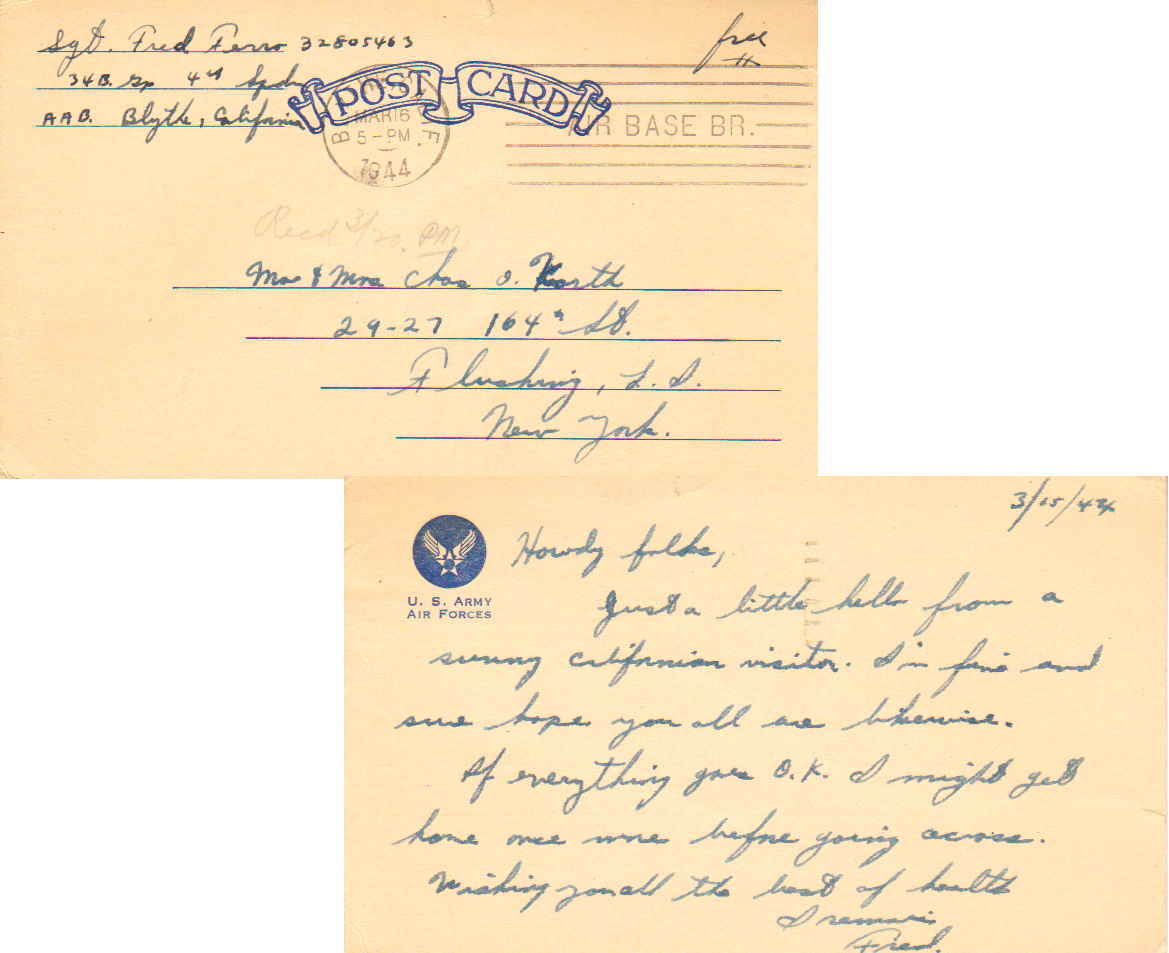 Sgt. Fred Ferro 32805463
free
34 B. Gp 4th Spdn
POST CARD
A A B. Blythe, California
MAR 16
5-PM
1944
AIR BASE BR.
Recd 3/20. PM
Mr & Mrs Chas O. Korth
29-27 164th St.
Flushing, L. I.
New York.
3/15/44
U. S. ARMY
AIR FORCES
Howdy folks,
Just a little hello from a
sunny californian visitor. I'm fine and
sure hope you all are likewise.
If everything goes O.K. I might get
home once more before going across.
Wishing you all the best of health
I remain
Fred.